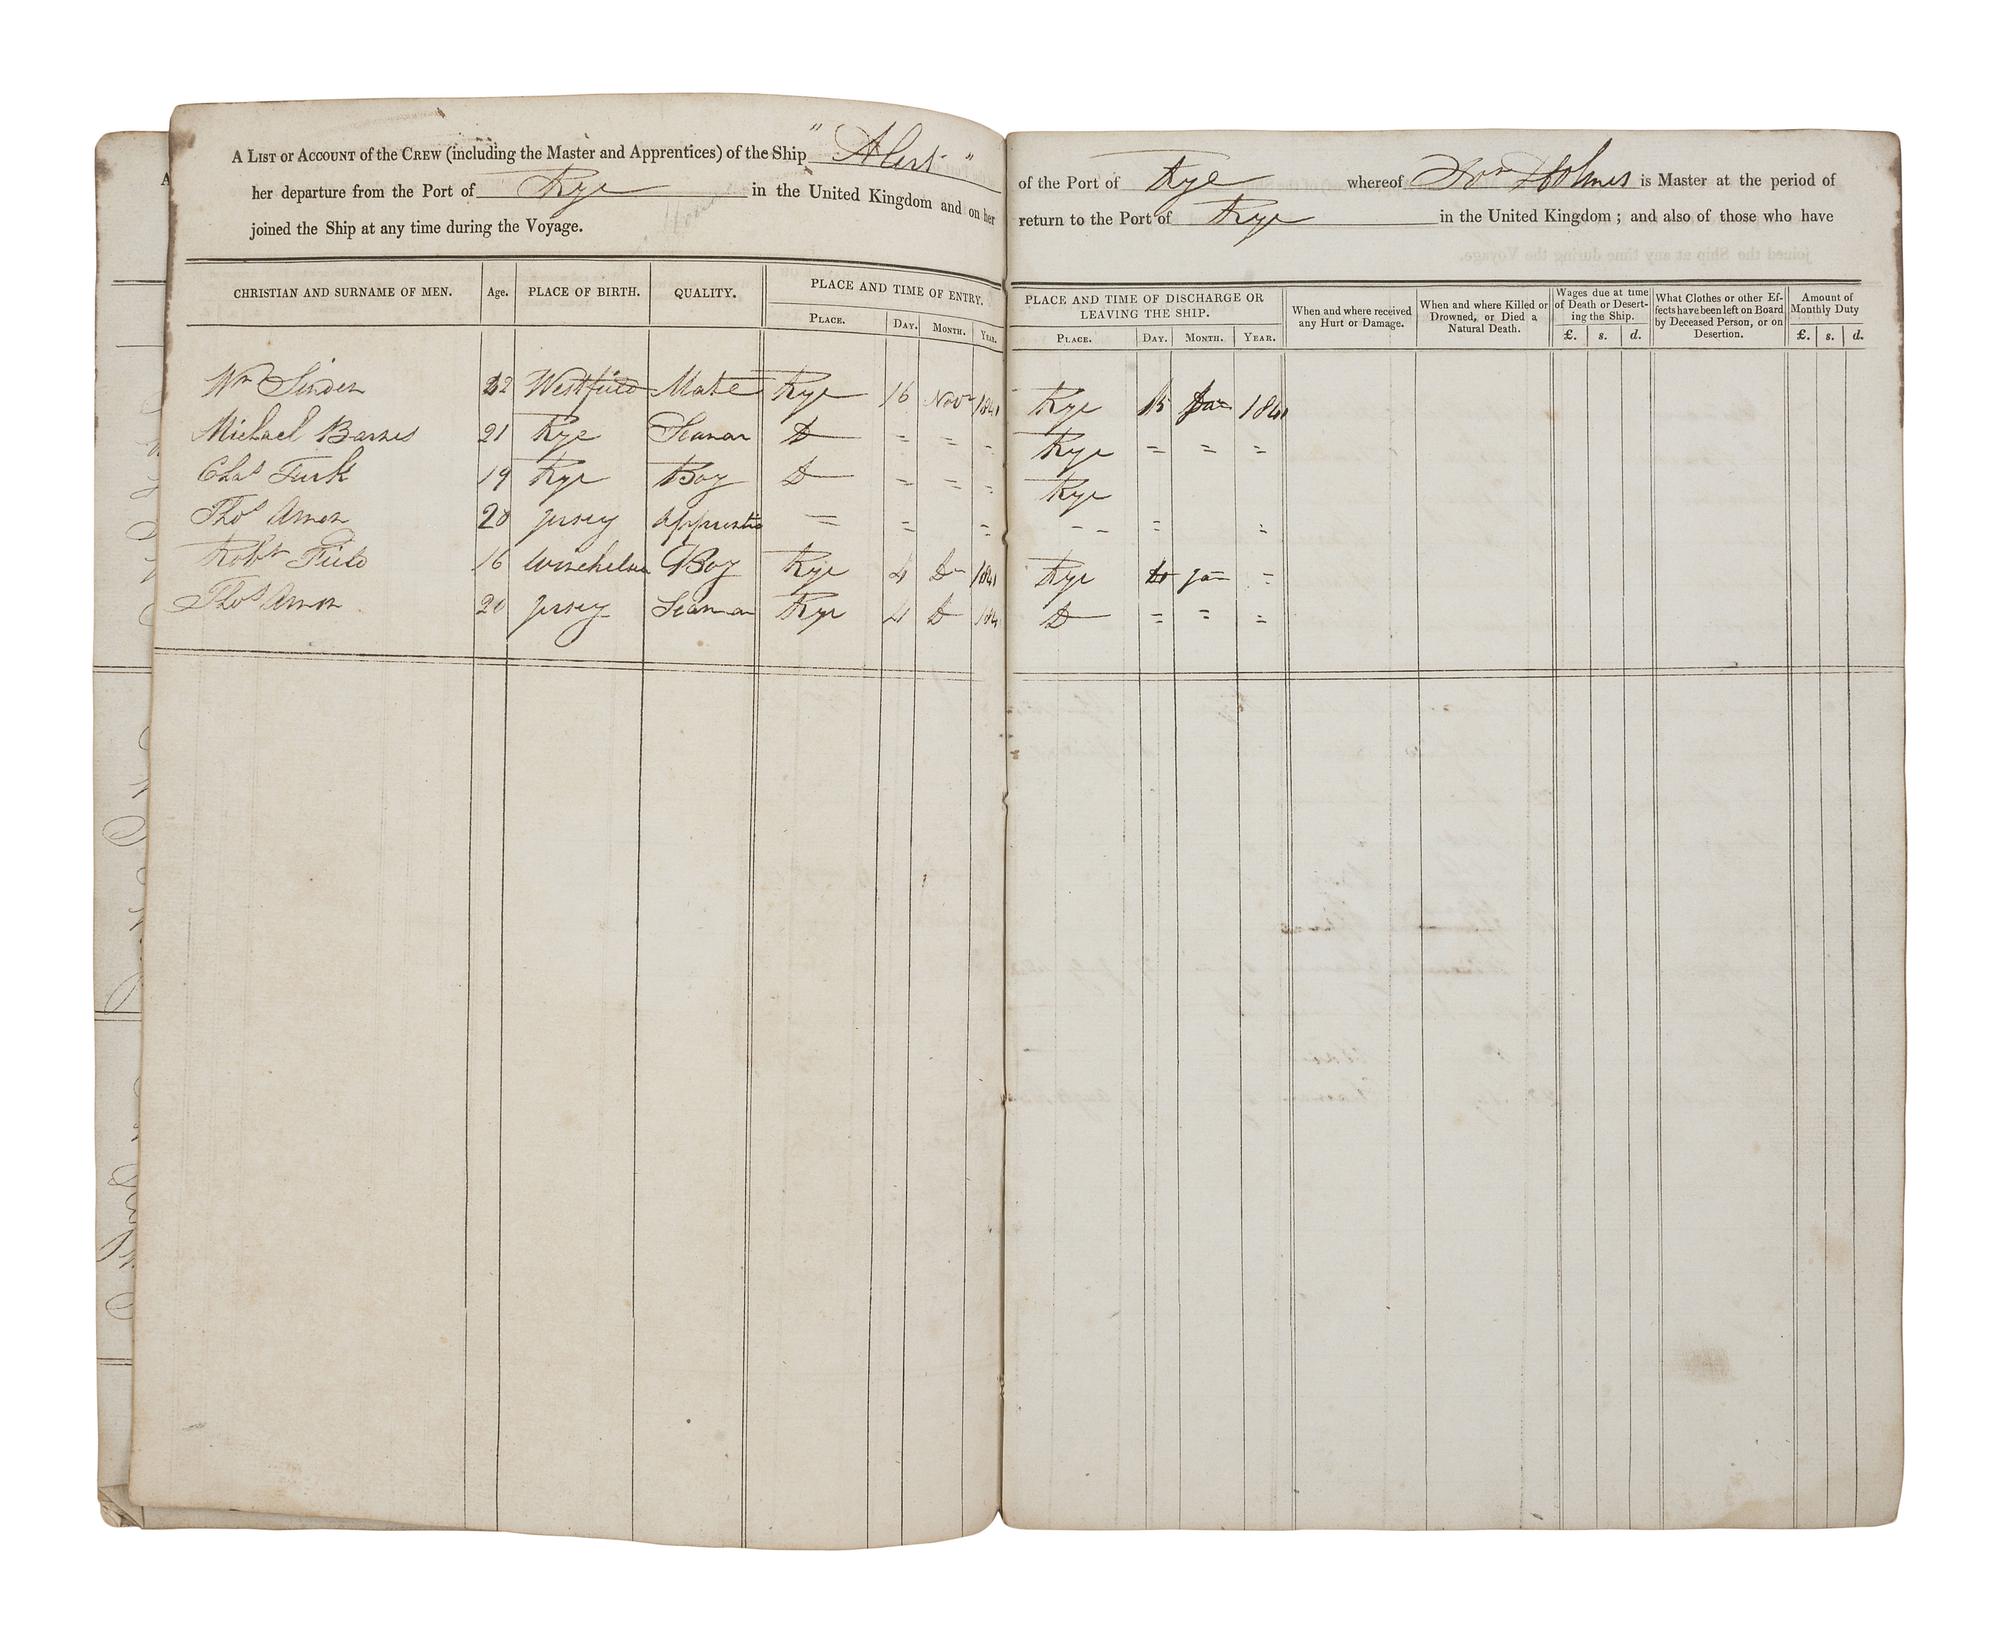 A LIST OR ACCOUNT of the CREW (including the Master and Apprentices) of the Ship "Alert"
her departure from the Port of Rye in the United Kingdom and on her
joined the Ship at any time during the Voyage.
CHRISTIAN AND SURNAME OF MEN. Age. PLACE OF BIRTH. QUALITY. PLACE AND TIME OF ENTRY.
PLACE. DAY. MONTH. YEAR.
Wm Sinden 22 Westfield Mate Rye 16 Novr 1841
Michael Barnes 21 Rye Seaman Do = = =
Chas Turk 19 Rye Boy Do = = =
Thos Amon 20 Jersey apprentice = = =
Robt Field 16 Winchelsea Boy Rye 4 Dr 1841
Thos Amon 20 Jersey Seaman Rye 4 D 184
of the Port of Rye whereof Wm Holmes is Master at the period of
return to the Port of Rye in the United Kingdom; and also of those who have
PLACE AND TIME OF DISCHARGE OR LEAVING THE SHIP. When and where received any Hurt or Damage. When and where Killed or Drowned, or Died a Natural Death. Wages due at time of Death or Desert-ing the Ship. What Clothes or other Ef-fects have been left on Board by Deceased Person, or on Desertion. Amount of Monthly Duty
PLACE. DAY. MONTH. YEAR. £. s. d. £. s. d.
Rye 15 Jan 1841
Rye = = =
Rye
- - = =
Rye Jan =
Do = = =